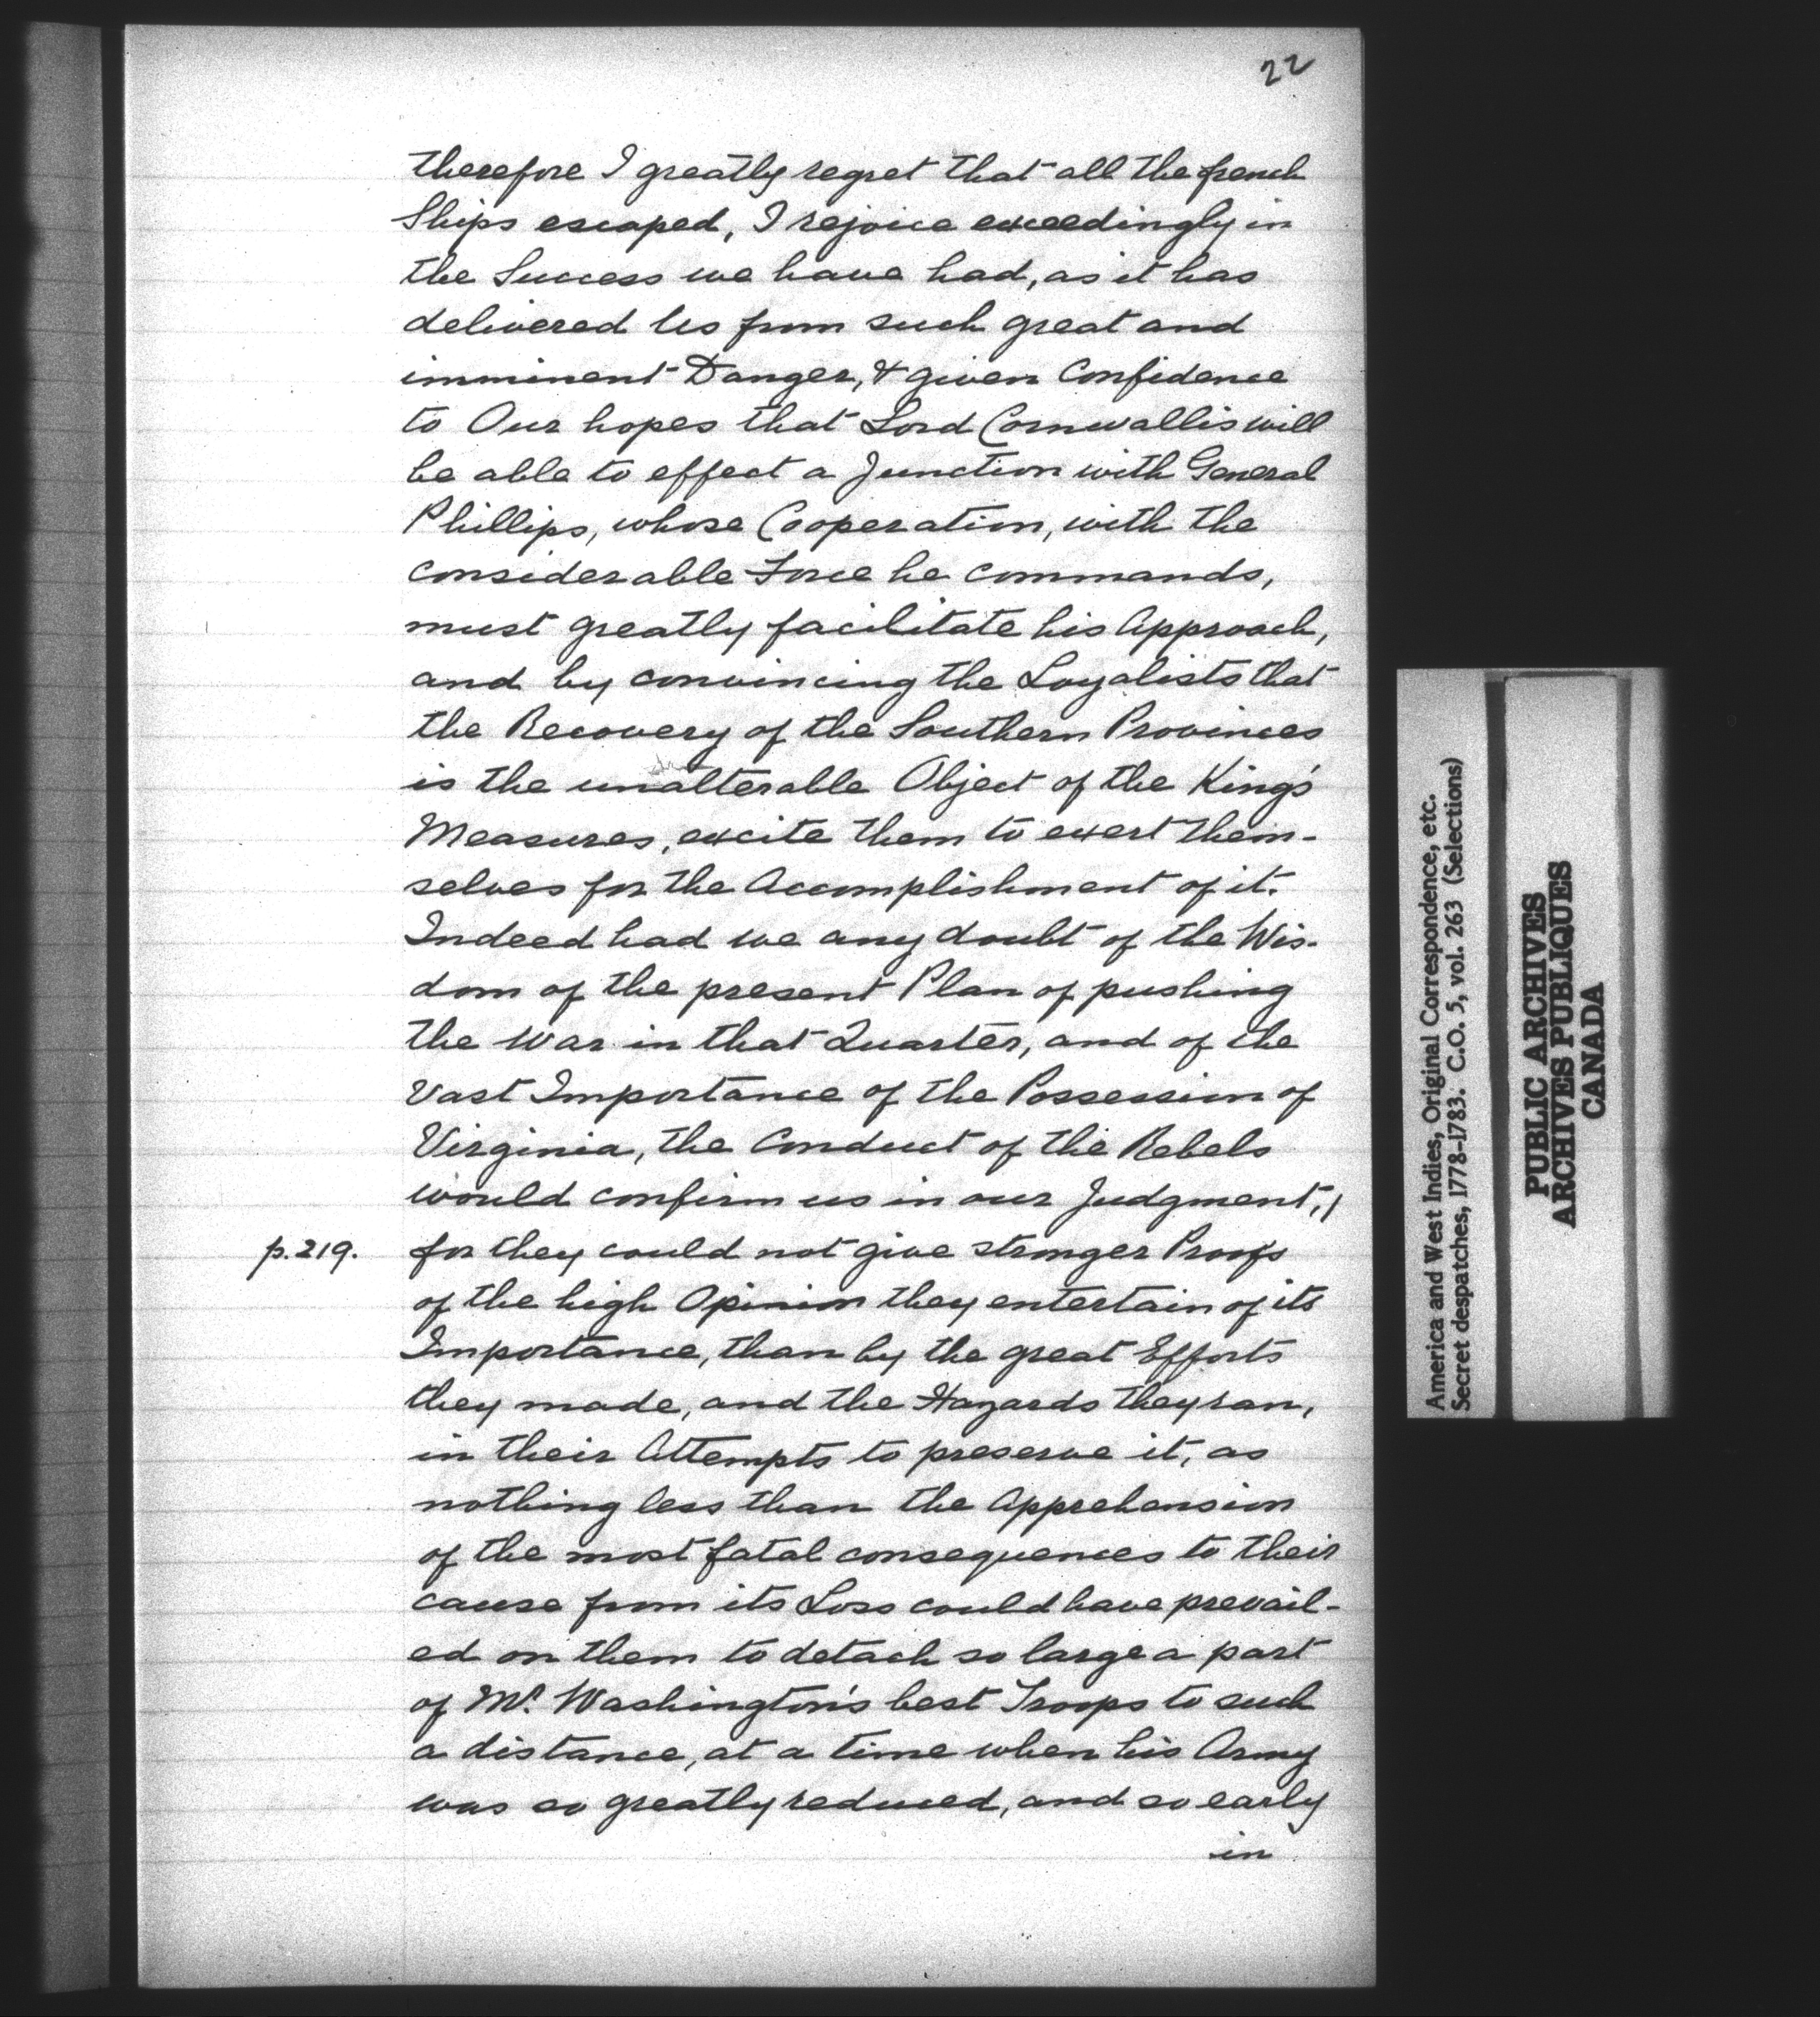 22
therefore I greatly regret that all the french
Ships escaped, I rejoice exceedingly in
the Success we have had, as it has
delivered Us from such great and
imminent Danger, & given Confidence
to Our hopes that Lord Cornwallis will
be able to effect a Junction with General
Phillips, whose Cooperation, with the
considerable Force he commands,
must greatly facilitate his Approach,
and by convincing the Loyalists that
the Recovery of the Southern Provinces
is the unalterable Object of the King's
Measures, excite them to exert them-
selves for the Accomplishment of it.
Indeed had we any doubt of the Wis-
dom of the present Plan of pushing
the War in that Quarter, and of the
Vast Importance of the Possession of
Virginia, the Conduct of the Rebels
would confirm us in our Judgment,/
p.219. for they could not give stronger Proofs
of the high Opinion they entertain of its
Importance, than by the great Efforts
they made, and the Hazards they ran,
in their Attempts to preserve it, as
nothing less than the Apprehension
of the most fatal consequences to their
cause from its Loss could have prevail-
ed on them to detach so large a part
of Mr. Washington's best Troops to such
a distance, at a time when his Army
was so greatly reduced, and so early
in
America and West Indies, Original Correspondence, etc.
Secret despatches, 1778-1783. C.O. 5, vol. 263 (Selections)
PUBLIC ARCHIVES
ARCHIVES PUBLIQUES
CANADA